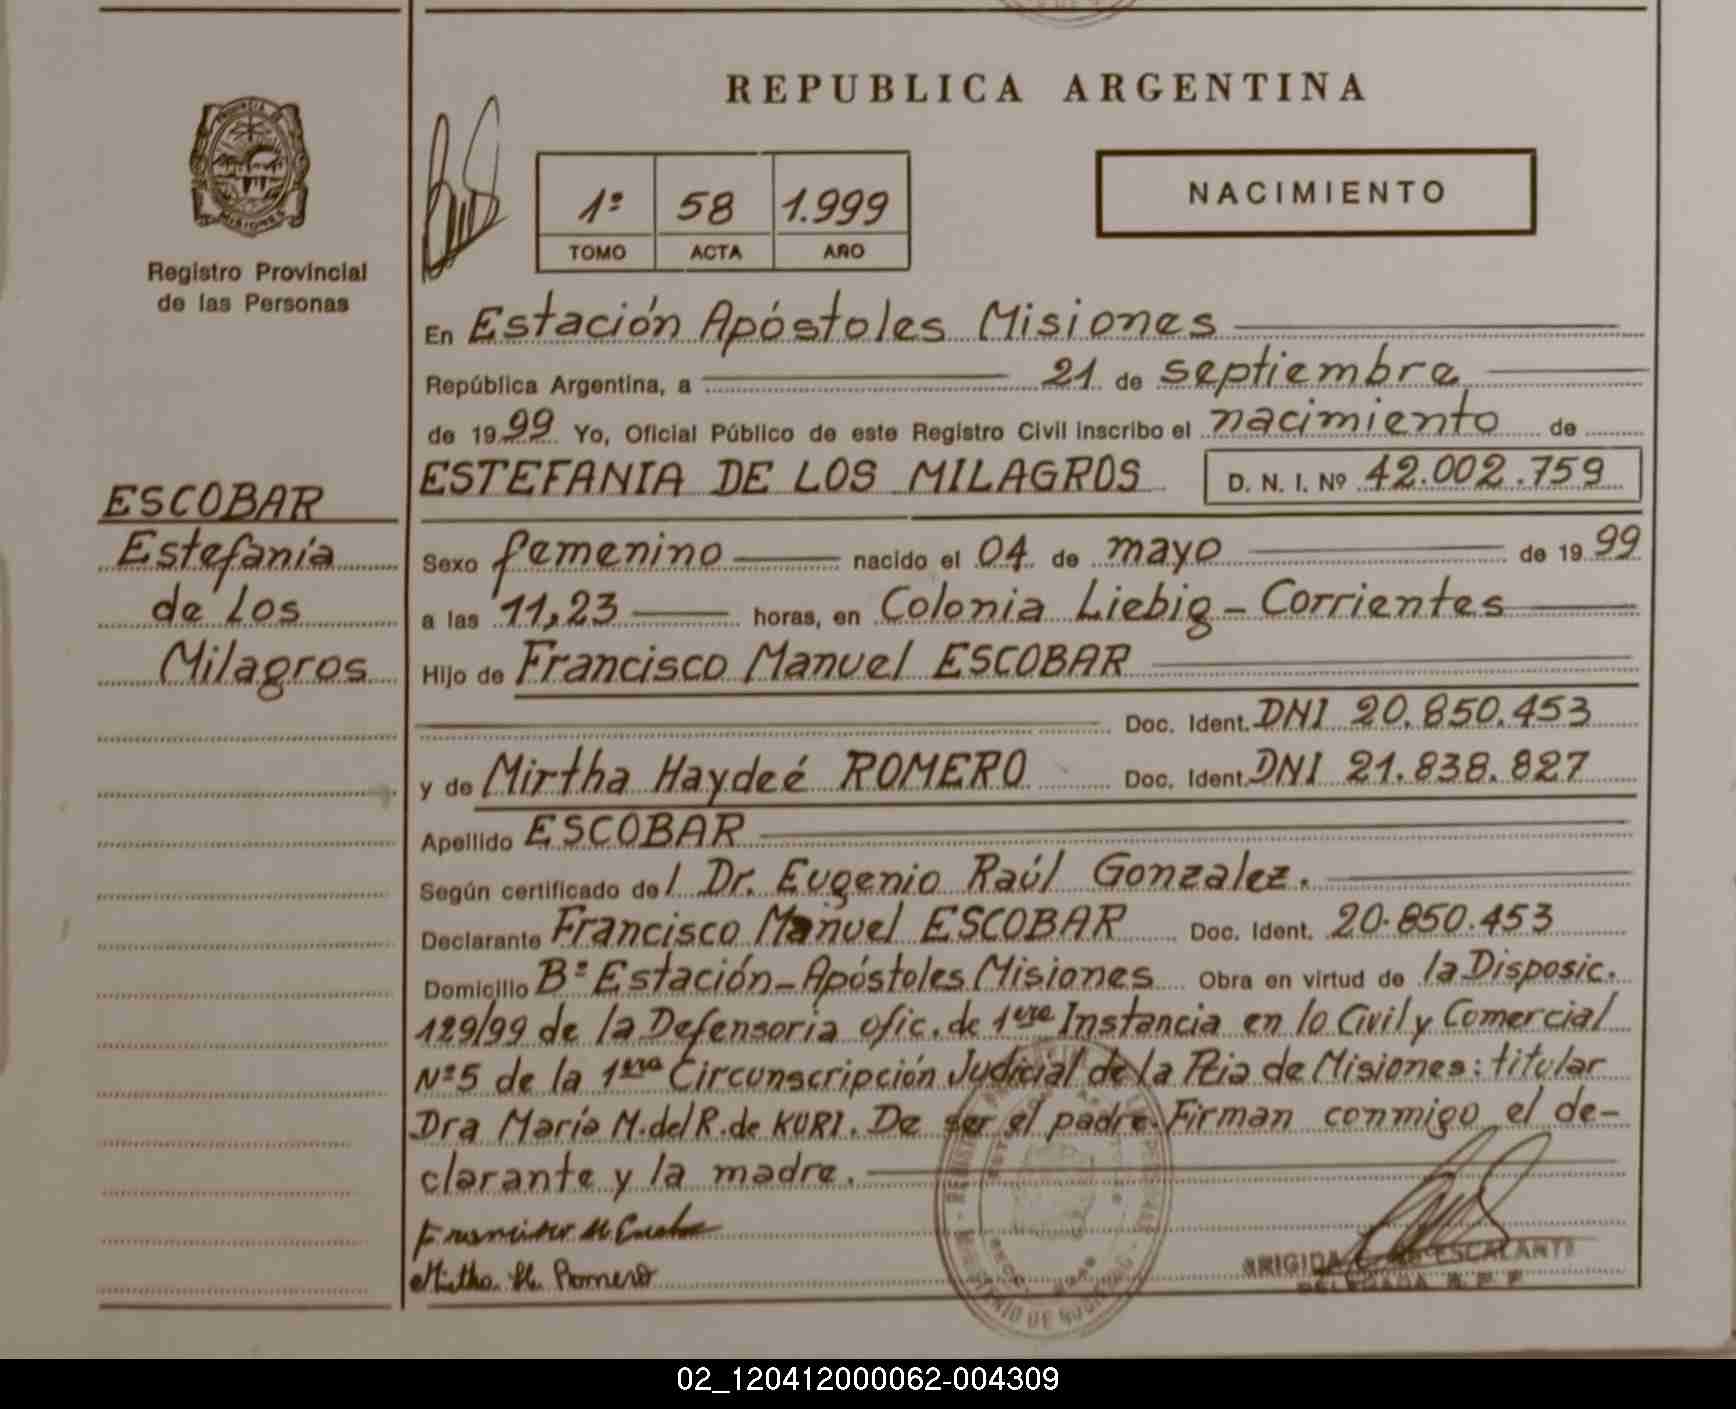 REPUBLICA ARGENTINA
PROVINCIA
MISIONES
Registro Provincial
de las Personas
1º 58 1.999
TOMO ACTA AÑO
NACIMIENTO
En Estación Apóstoles Misiones
República Argentina, a 21 de septiembre
de 1999 Yo, Oficial Público de este Registro Civil inscribo el nacimiento de
ESTEFANIA DE LOS MILAGROS D. N. I. Nº 42.002.759
ESCOBAR
Estefanía
de Los
Milagros
Sexo femenino nacido el 04 de mayo de 1999
a las 11,23 horas, en Colonia Liebig - Corrientes
Hijo de Francisco Manuel ESCOBAR
Doc. Ident. DNI 20.850.453
y de Mirtha Haydeé ROMERO Doc. Ident. DNI 21.838.827
Apellido ESCOBAR
Según certificado del Dr. Eugenio Raúl Gonzalez.
Declarante Francisco Manuel ESCOBAR Doc. Ident. 20.850.453
Domicilio Bº Estación - Apóstoles Misiones Obra en virtud de la Disposic.
129/99 de la Defensoria ofic. de 1era Instancia en lo Civil y Comercial
Nº 5 de la 1era Circunscripción Judicial de la Pcia de Misiones: titular
Dra María M. del R. de KURI. De ser el padre. Firman conmigo el de-
clarante y la madre.
Mirtha H. Romero
MINISTERIO DE GOBIERNO
BRIGIDA ESCALANTE
DELEGADA R. P. P.
02_120412000062-004309